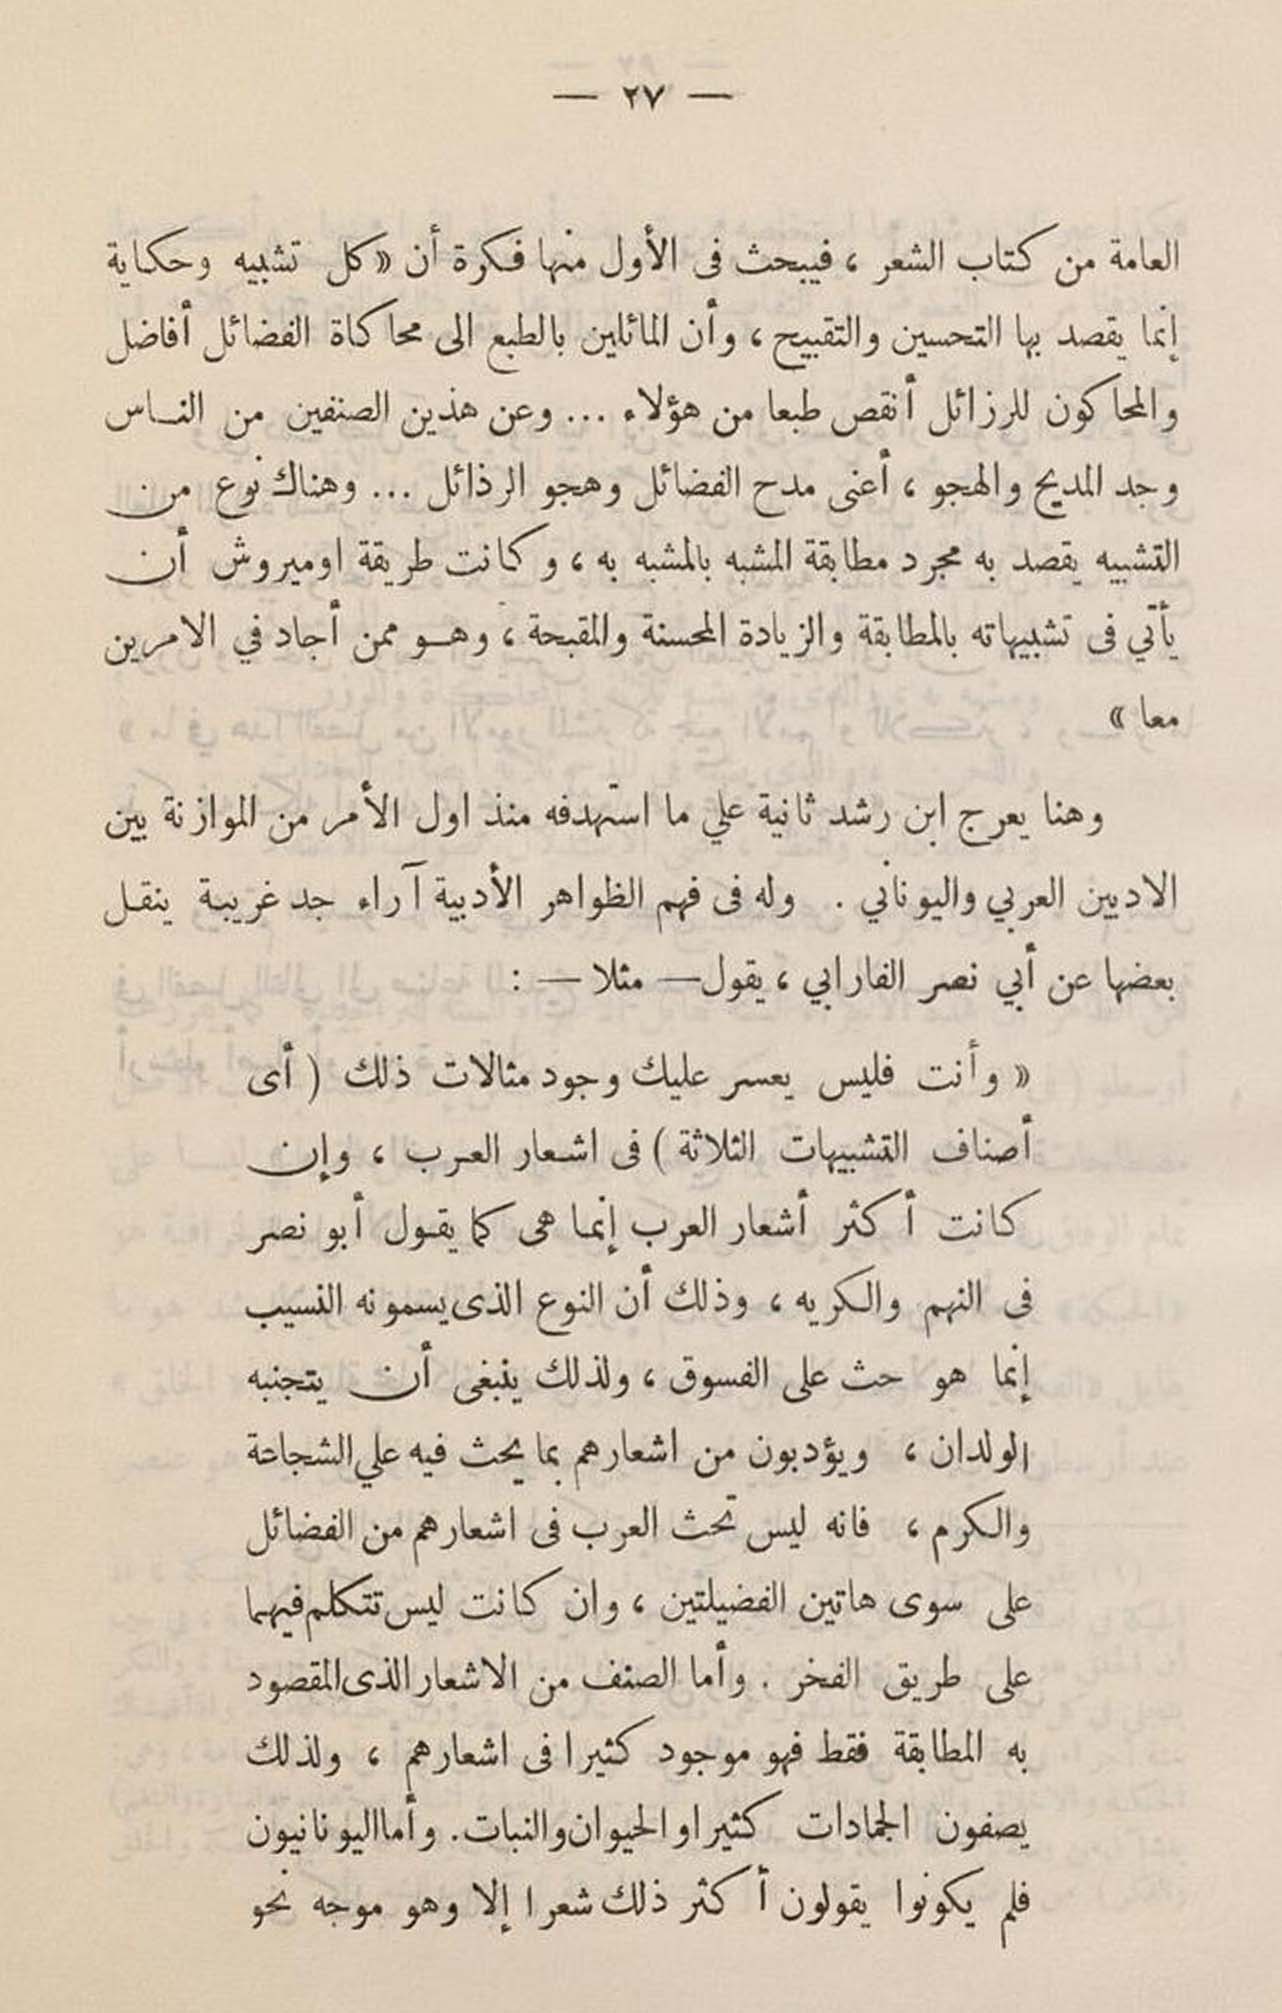 — ٢٧ —
العامة من كتاب الشعر ، فيبحث فى الأول منها فكرة أن « كل تشبيه وحكاية
إنما يقصد بها التحسين والتقبيح ، وأن المائلين بالطبع الى محاكاة الفضائل أفاضل
والمحاكون للرزائل أنقص طبعا من هؤلاء ... وعن هذين الصنفين من النــاس
وجد المديح والهجو ، أعنى مدح الفضائل وهجو الرذائل ... وهناك نوع من
التشبيه يقصد به مجرد مطابقة المشبه بالمشبه به ، وكانت طريقة اوميروش أن
يأتي فى تشبيهاته بالمطابقة والزيادة المحسنة والمقبحة ، وهــو ممن أجاد في الامرين
معا »
وهنا يعرج ابن رشد ثانية علي ما استهدفه منذ اول الأمر من الموازنة بين
الادبين العربي واليوناني . وله فى فهم الظواهر الأدبية آراء جد غريبة ينقل
بعضها عن أبي نصر الفارابي ، يقول — مثلا — :
« وأنت فليس يعسر عليك وجود مثالات ذلك ( أى
أصناف التشبيهات الثلاثة ) فى اشعار العرب ، وإن
كانت أكثر أشعار العرب إنما هى كما يقول أبو نصر
فى النهم والكريه ، وذلك أن النوع الذى يسمونه النسيب
إنما هو حث على الفسوق ، ولذلك ينبغى أن يتجنبه
الولدان ، ويؤدبون من اشعارهم بما يحث فيه علي الشجاعة
والكرم ، فانه ليس تحث العرب فى اشعارهم من الفضائل
على سوى هاتين الفضيلتين ، وان كانت ليس تتكلم فيهما
على طريق الفخر . وأما الصنف من الاشعار الذى المقصود
به المطابقة فقط فهو موجود كثيرا فى اشعارهم ، ولذلك
يصفون الجمادات كثيرا والحيوان والنبات . وأما اليونانيون
فلم يكونوا يقولون أكثر ذلك شعرا إلا وهو موجه نحو